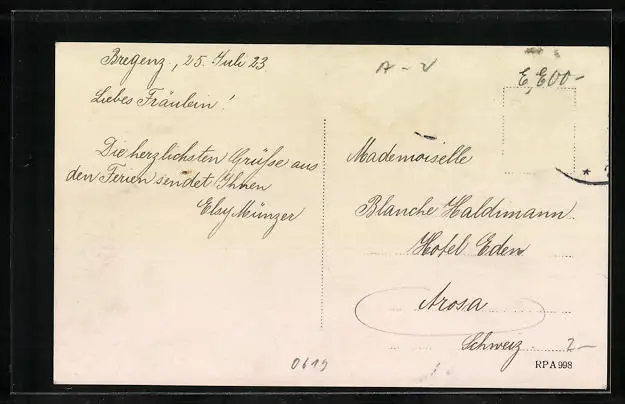 Bregenz, 25. Juli 23
Liebes Fräulein!
Die herzlichsten Grüsse aus
den Ferien sendet Ihnen
Elsy Münzer
A - V
Mademoiselle
Blanche Haldimann
Hotel Eden
Arosa
Schweiz
2-
0619
RPA 998